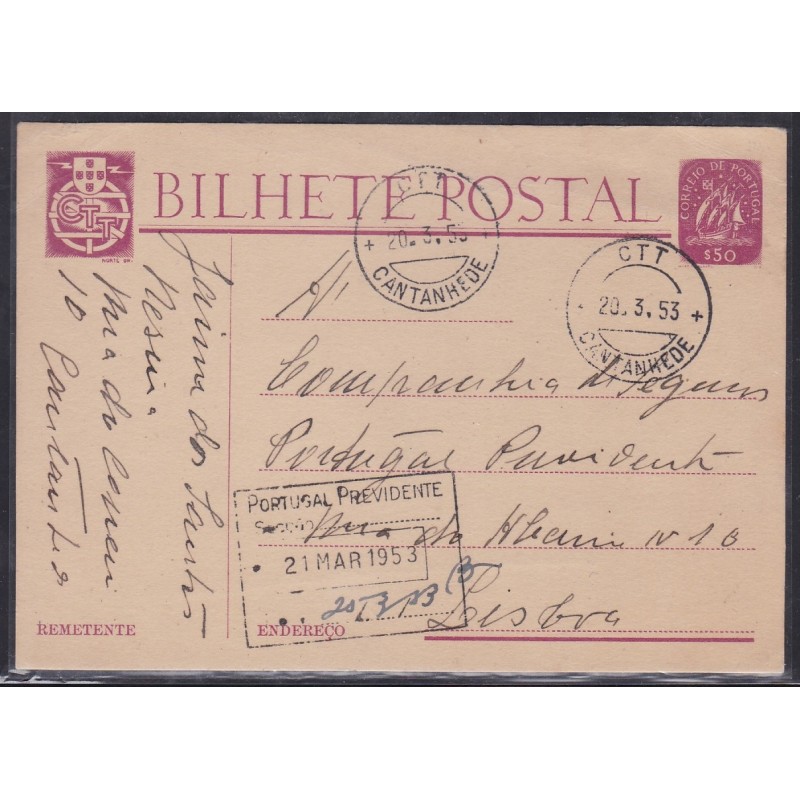 BILHETE POSTAL
CTT
NORTE GR.
CORREIO DE PORTUGAL
$50
CTT
20. 3. 53
CANTANHEDE
CTT
20. 3. 53
CANTANHEDE
A'
Companhia de Seguros
Portugal Previdente
Rua do Alecrim Nº 10
Lisboa
PORTUGAL PREVIDENTE
21 MAR 1953
dos Santos
Rua do
10
REMETENTE
ENDEREÇO